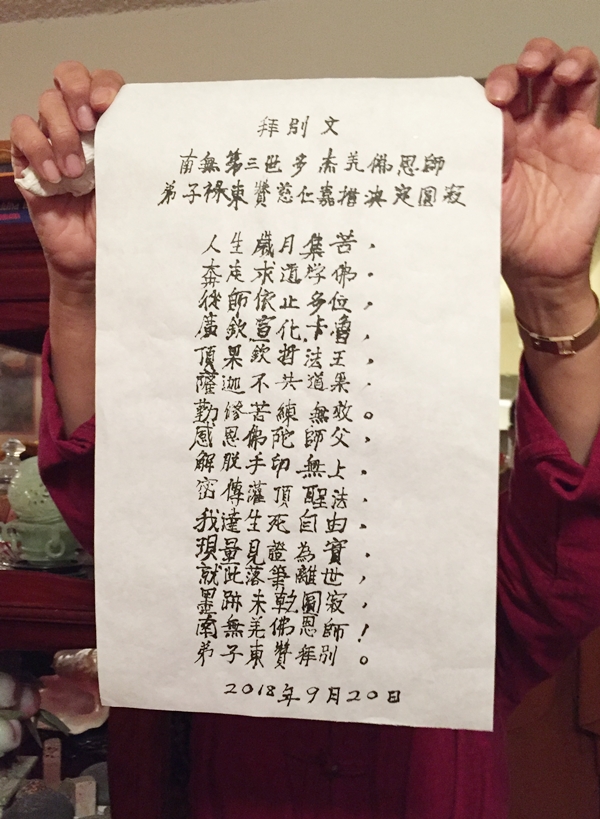 拜別文
南無第三世多杰羌佛恩師
弟子祿東贊慈仁嘉措決定圓寂
人生歲月集苦，
奔走求道学佛。
後師依止多位，
蔣欽宣化卡魯，
頂果欽哲法王，
薩迦不共道果，
勤修苦練無敢。
感恩佛陀師父，
解脫手印無上。
密傳灌頂聖法，
我達生死自由。
現量見證為實，
就此落筆離世，
墨跡未乾圓寂，
南無羌佛恩師！
弟子東贊拜別。
2018年9月20日